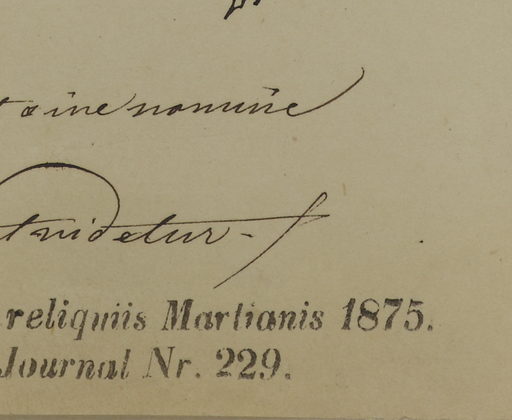 sine nomine
t videtur -
reliquiis Martianis 1875.
Journal Nr. 229.